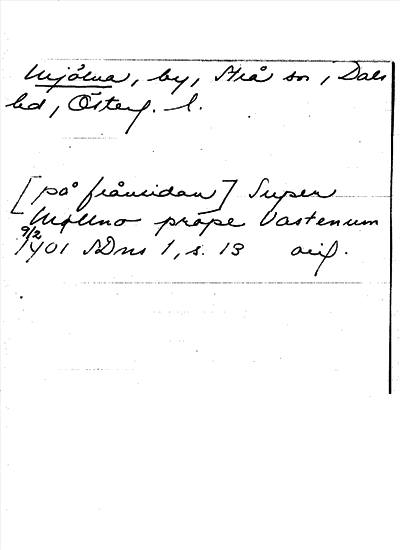 Mjölna, by, Strå sn, Dals
hd, Österg. l.
[på frånsidan] Super
Møllno prope Vastenum
9/2 1401 SDns 1, s. 13 orig.